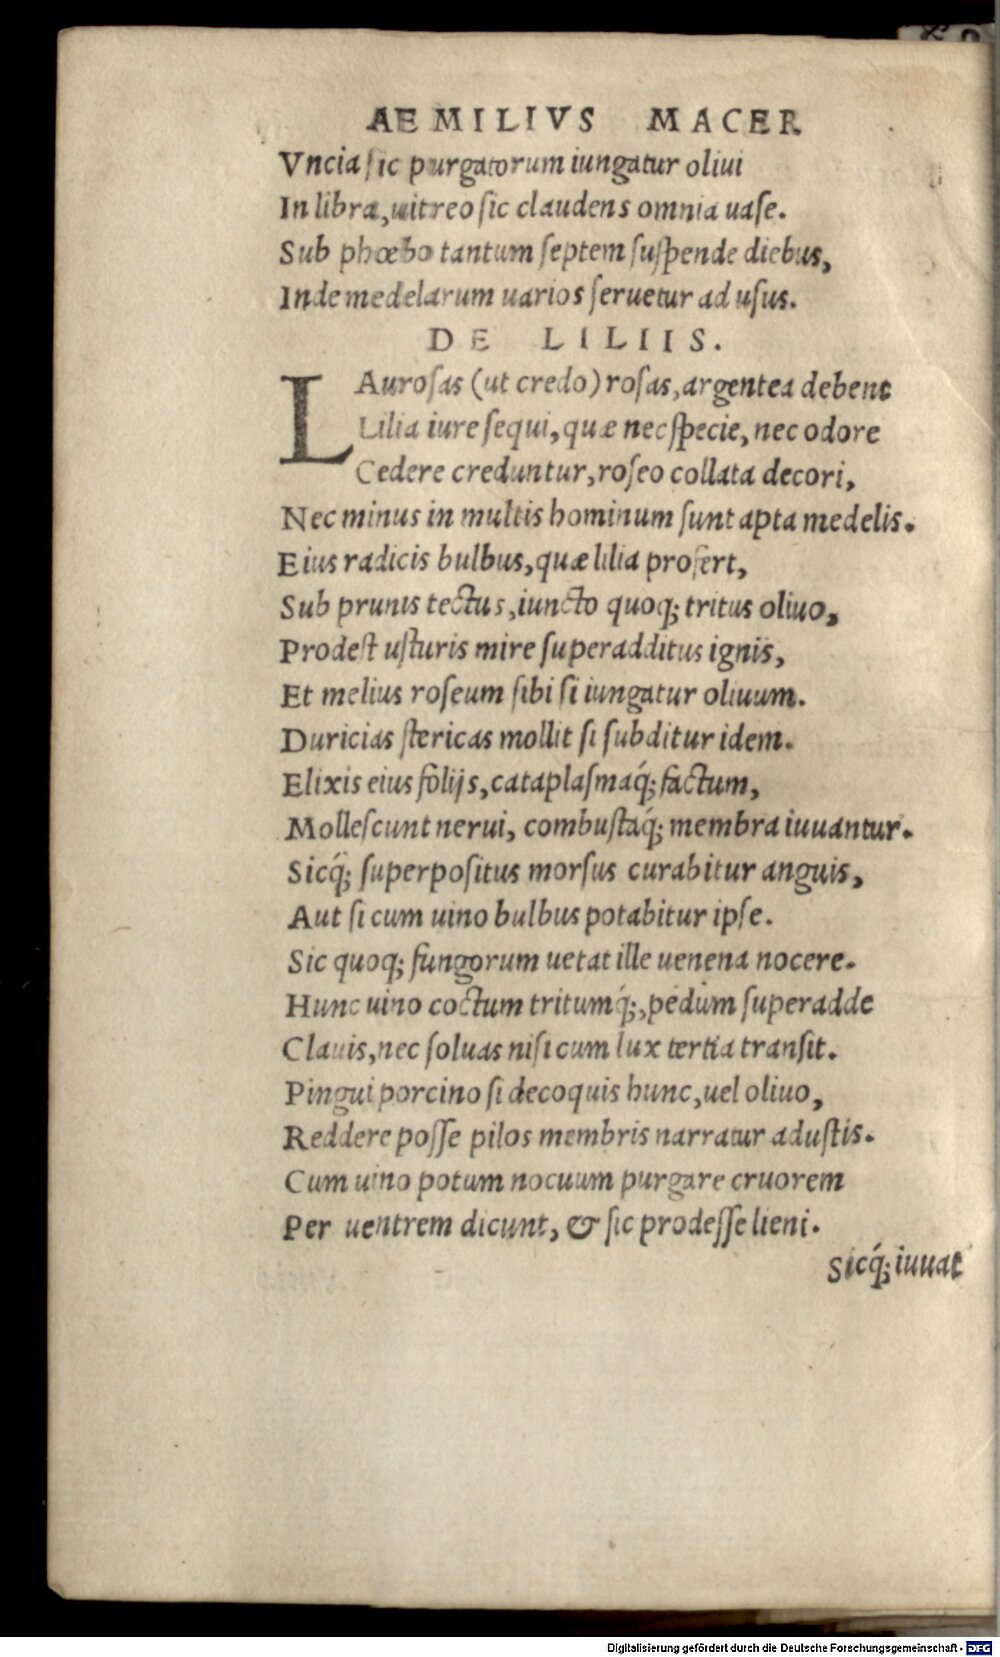 AEMILIVS MACER
Vncia ſic purgatorum iungatur oliui
In libra, uitreo ſic claudens omnia uaſe.
Sub phœbo tantum ſeptem ſuſpende diebus,
Inde medelarum uarios ſeruetur ad uſus.
DE LILIIS.
LAurosas (ut credo) roſas, argentea debent
Lilia iure ſequi, quæ nec ſpecie, nec odore
Cedere creduntur, roſeo collata decori,
Nec minus in multis hominum ſunt apta medelis.
Eius radicis bulbus, quæ lilia profert,
Sub prunis tectus, iuncto quoq; tritus oliuo,
Prodeſt uſturis mire ſuperadditus ignis,
Et melius roſeum ſibi ſi iungatur oliuum.
Duricias ſtericas mollit ſi ſubditur idem.
Elixis eius folijs, cataplaſmaq́; factum,
Molleſcunt nerui, combuſtaq́; membra iuuantur.
Sicq́; ſuperpoſitus morſus curabitur anguis,
Aut ſi cum uino bulbus potabitur ipſe.
Sic quoq; fungorum uetat ille uenena nocere.
Hunc uino coctum tritumq́;, pedum ſuperadde
Clauis, nec ſoluas niſi cum lux tertia tranſit.
Pingui porcino ſi decoquis hunc, uel oliuo,
Reddere poſſe pilos membris narratur aduſtis.
Cum uino potum nocuum purgare cruorem
Per uentrem dicunt, & ſic prodeſſe lieni.
Sicq́; iuuat
Digitalisierung gefördert durch die Deutsche Forschungsgemeinschaft - DFG